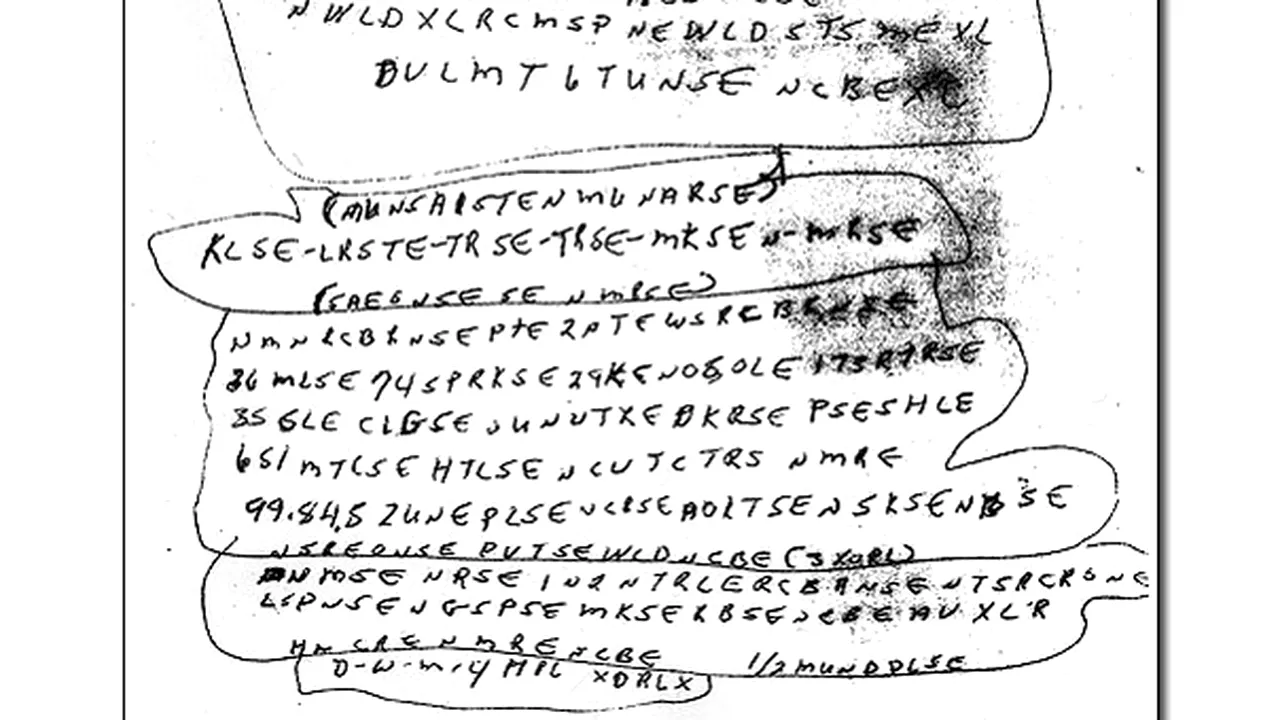 NWLDXLRCMSP NEWLDSTSMEXL
DULMT6TUNSE NCBEXC
(MUNSAISTENMUNARSE)
KLSE-LRSTE-TRSE-TRSE-MKSEN-MRSE
(SAE6NSESENMRSE)
NMNRCBRNSEPTE2PTEWSRCBRNSE
36MLSE74SPRKSE29KENOSOLE173RTRSE
35GLE CLGSEOUNUTXEDKRSE PSESHLE
651MTCSEHTLSENCUTCTRS NMRE
99.84.52UNEPLSENCRSEAOLTSENSKSENBSE
NSREONSE PUTSEWLDNCBE(3XORL)
NMSE NRSE IN2NTRLERCBRNSENTSRCRONE
LSPNSENGSPSE MKSERBSENCBEAUXLR
HNCRENMRENCBE 1/2MUNDDLSE
D-W-M-4HPL XDRLX